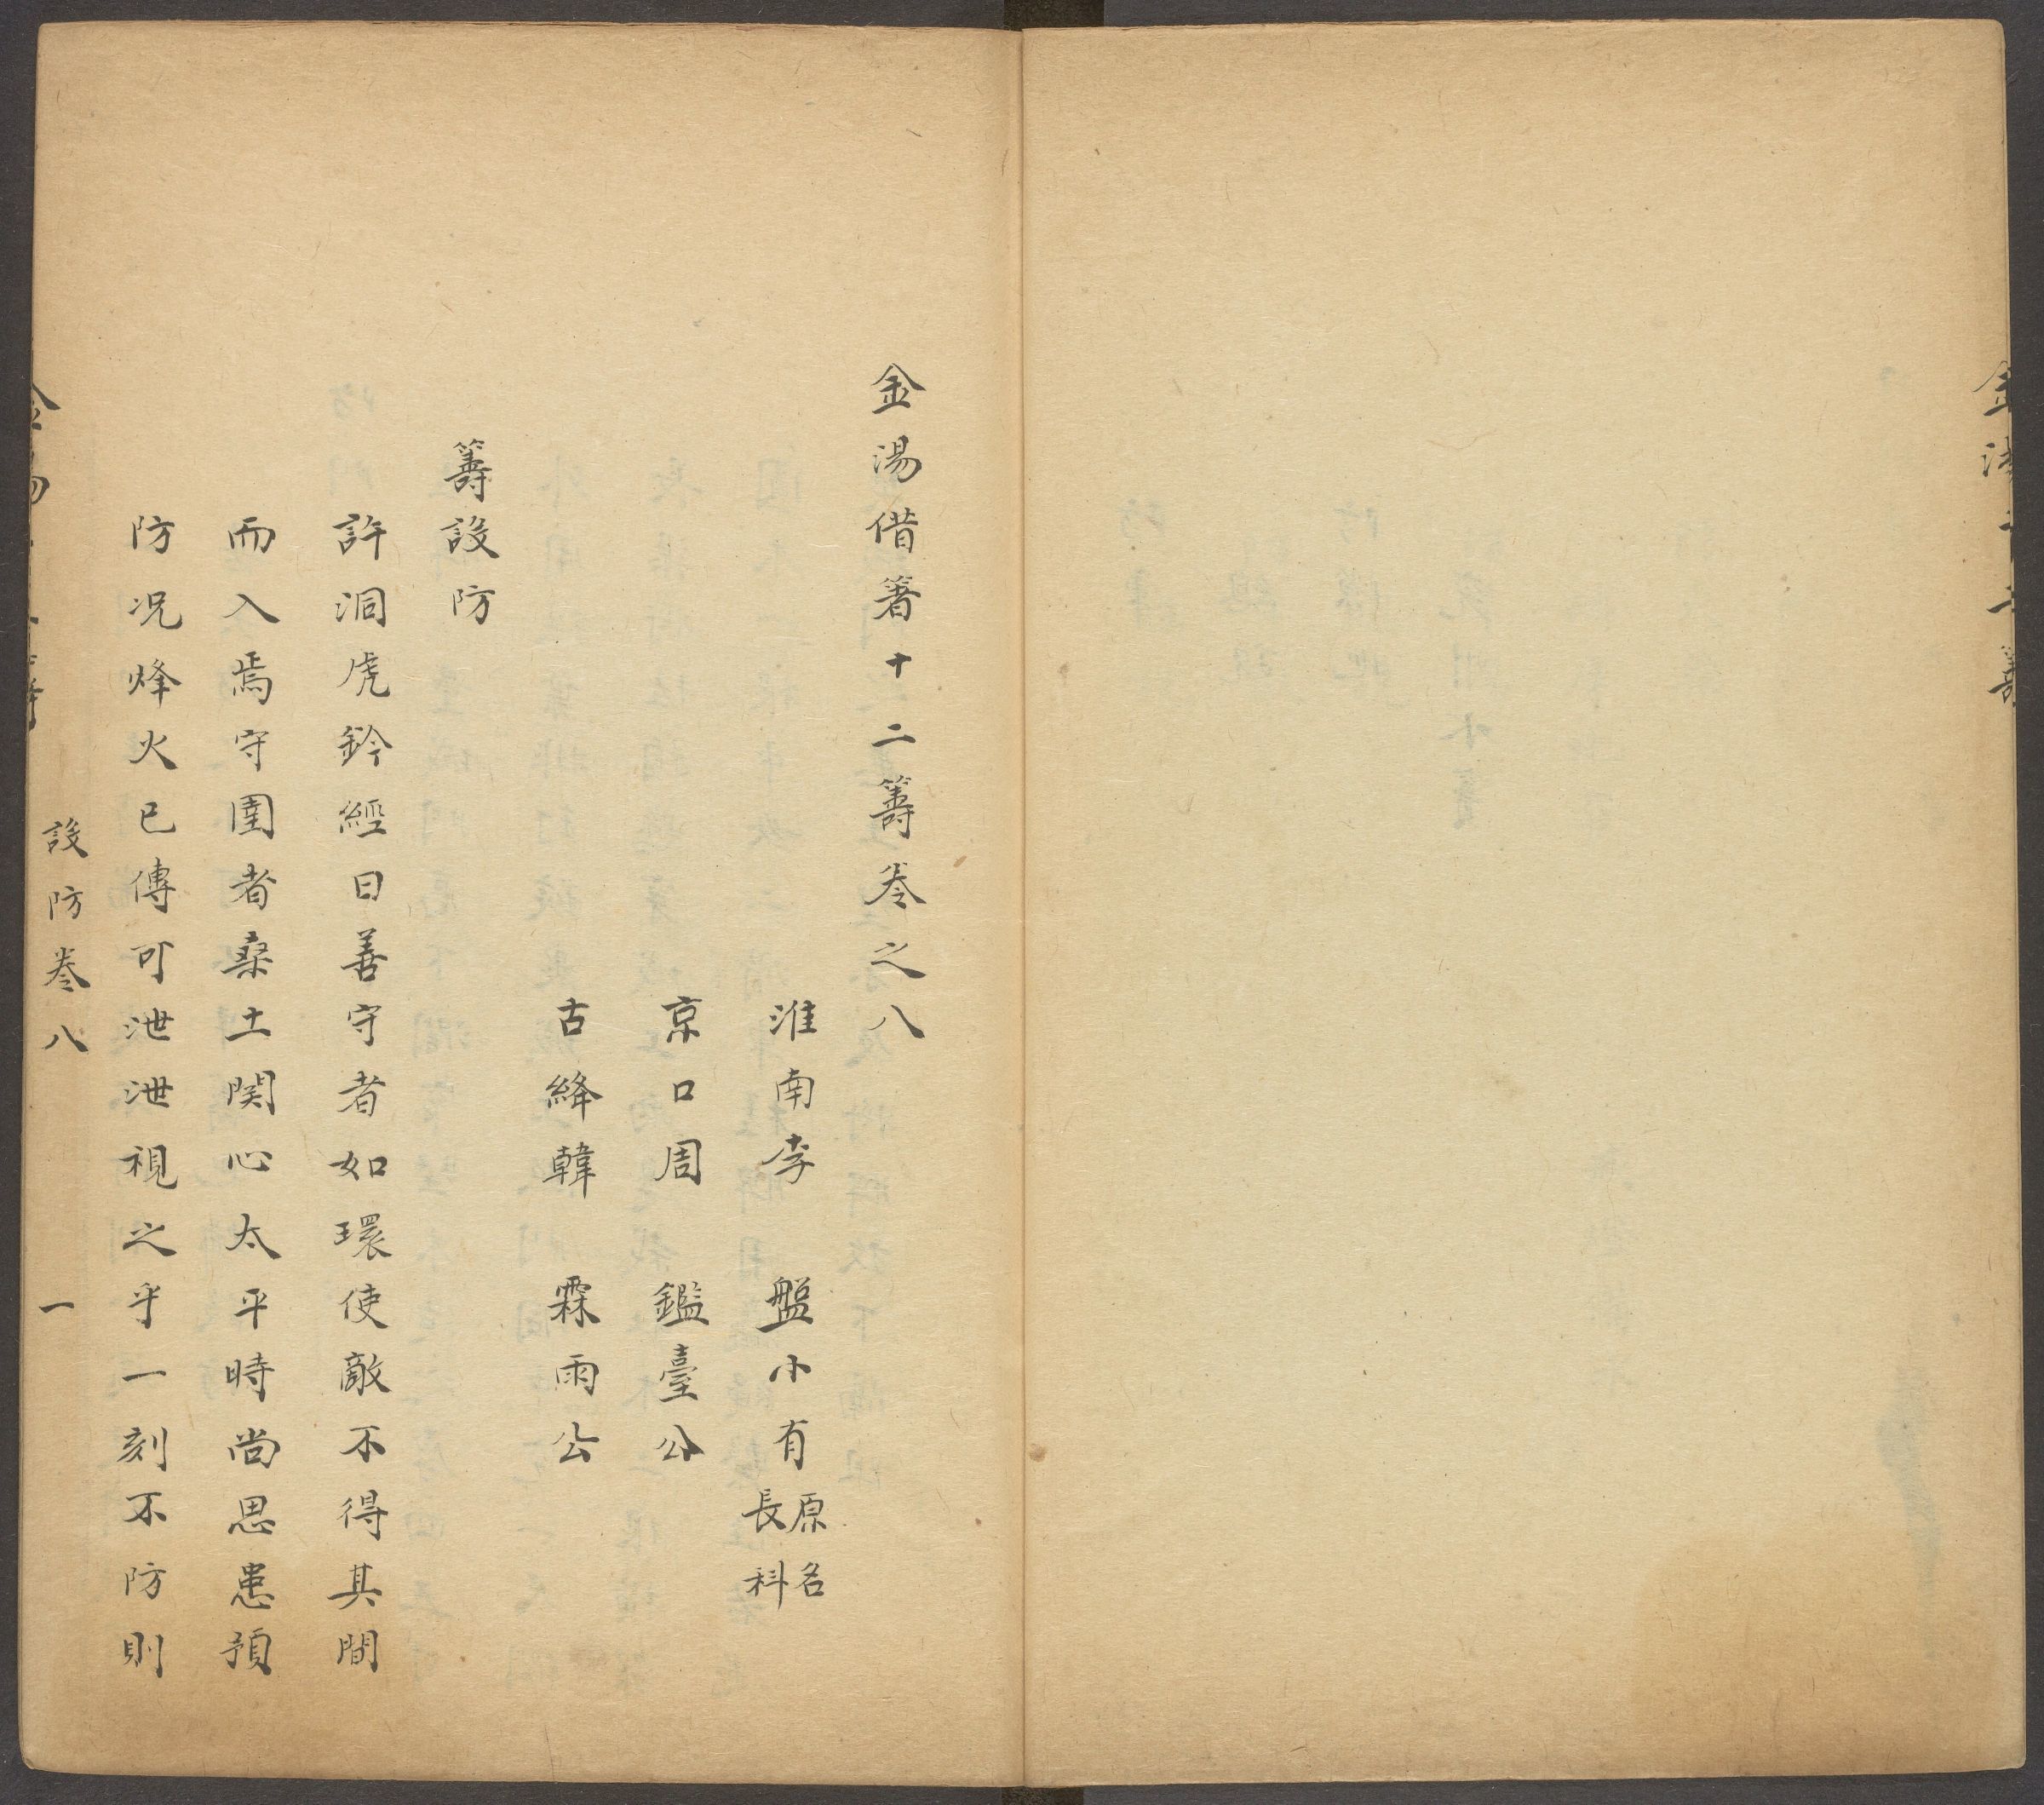 金湯借箸十二籌卷之八
淮南李　盤小有原名長科
京口周　鑑臺公
古絳韓　霖雨公
籌設防
許洞虎鈐經曰善守者如環使敵不得其間
而入焉守圉者桑土関心太平時尚思患預
防况烽火已傳可泄泄視之乎一刻不防則
設防卷八　一